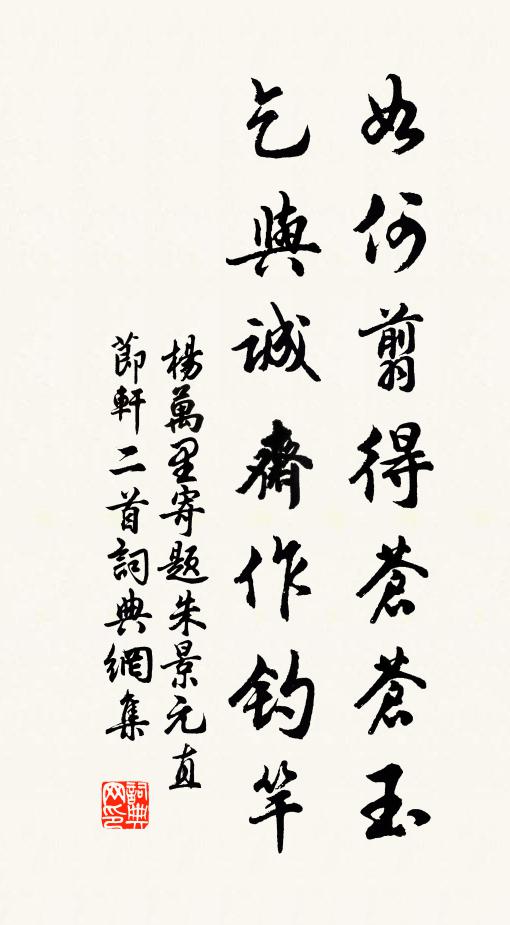 如何翦得蒼蒼玉
乞與誠齋作釣竿
楊萬里寄題朱景元直
節軒二首詞典網集
詞典
网印